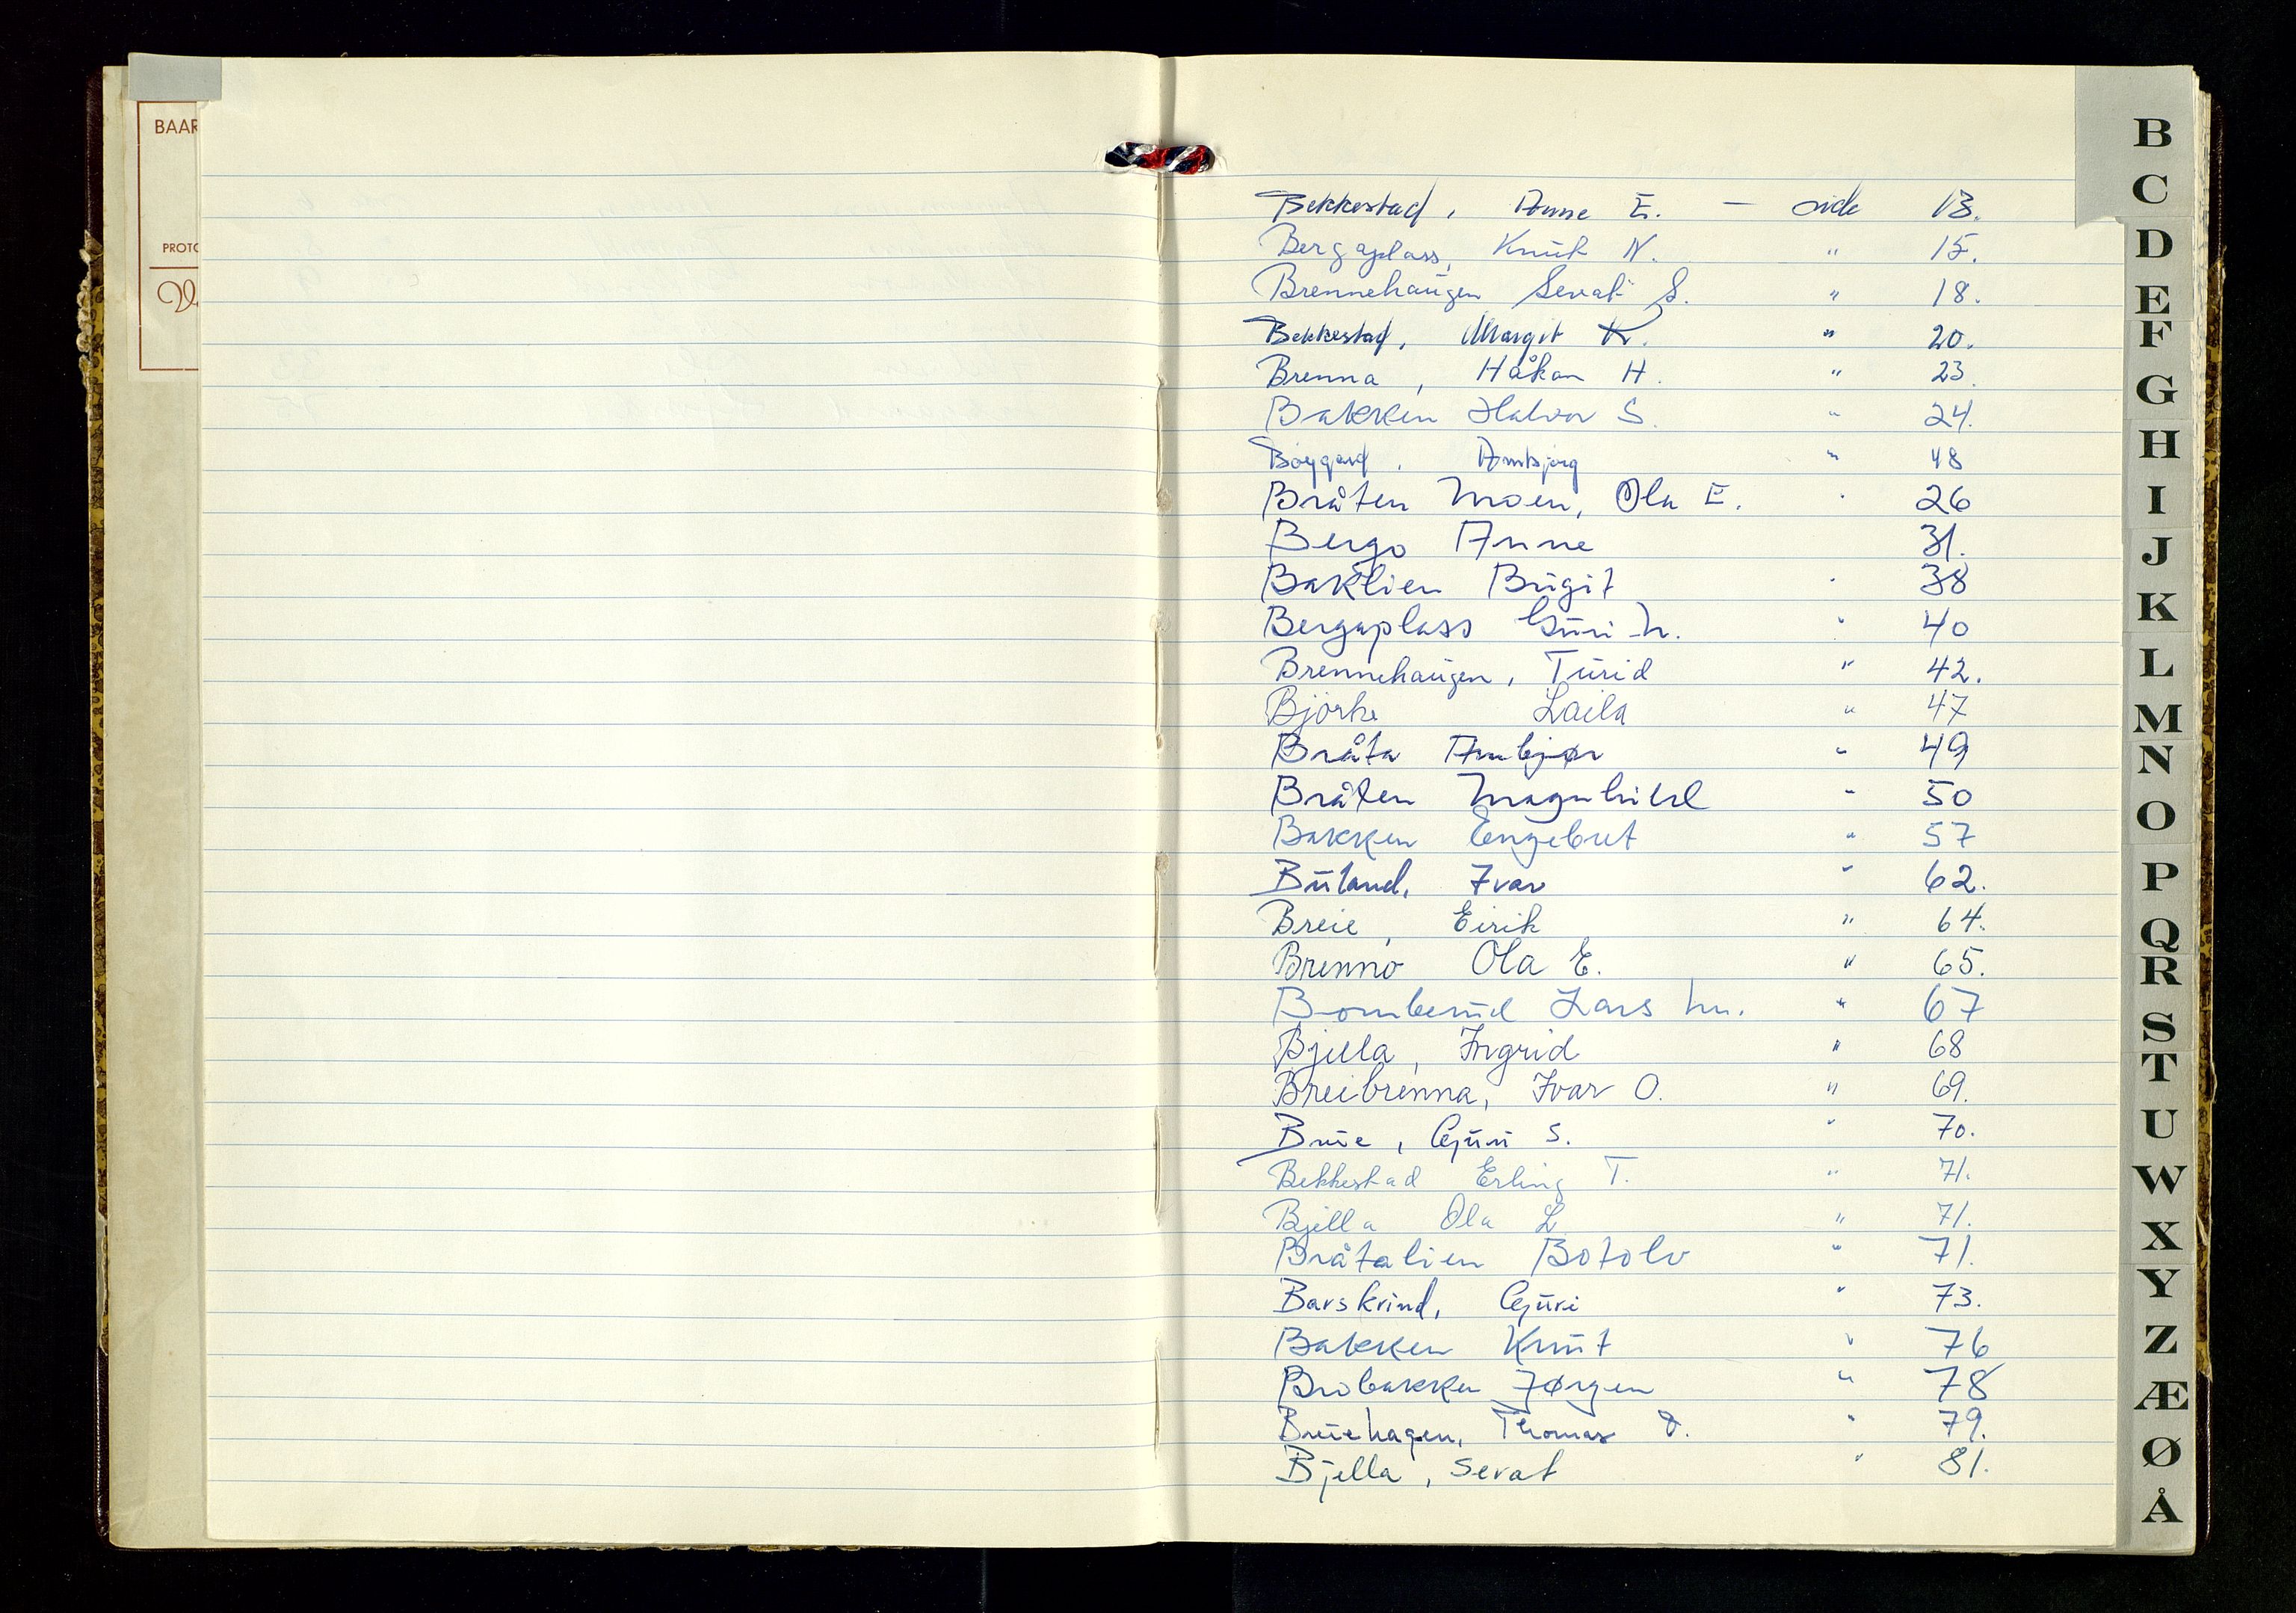 BAAR
PROTO
Bekkestad, Anne E. — side 13.
Bergaplass, Knut N. " 15.
Brennehaugen Sevat S. " 18.
Bekkestad, Margit K. " 20.
Brenna, Håkon H. " 23.
Bakken Halvor S. " 24.
Bøygard, Ambjørg " 48
Bråten Moen, Ola E. " 26
Bergo Anne 31.
Baklien Birgit " 38
Bergaplass Guri N. " 40
Brennehaugen, Turid " 42.
Bjørke Laila " 47
Bråta Ambjør " 49
Bråten Magnhild " 50
Bakken Engebret " 57
Buland, Ivar " 62.
Breie, Eirik " 64.
Brenno Ola E. " 65.
Bomberud Lars M. " 67
Bjella, Ingrid " 68
Breibrenna, Ivar O. " 69.
Breie, Guri S. " 70.
Bekkestad Erling T. " 71.
Bjella Ola L " 71.
Bråtalien Botolv " 71.
Barskrind, Guri " 73.
Bakken Knut " 76
Brobakken Jørgen " 78
Breiehagen, Thomas " 79.
Bjella, Sevat " 81.
B
C
D
E
F
G
H
I
J
K
L
M
N
O
P
Q
R
S
T
U
W
X
Y
Z
Æ
Ø
Å